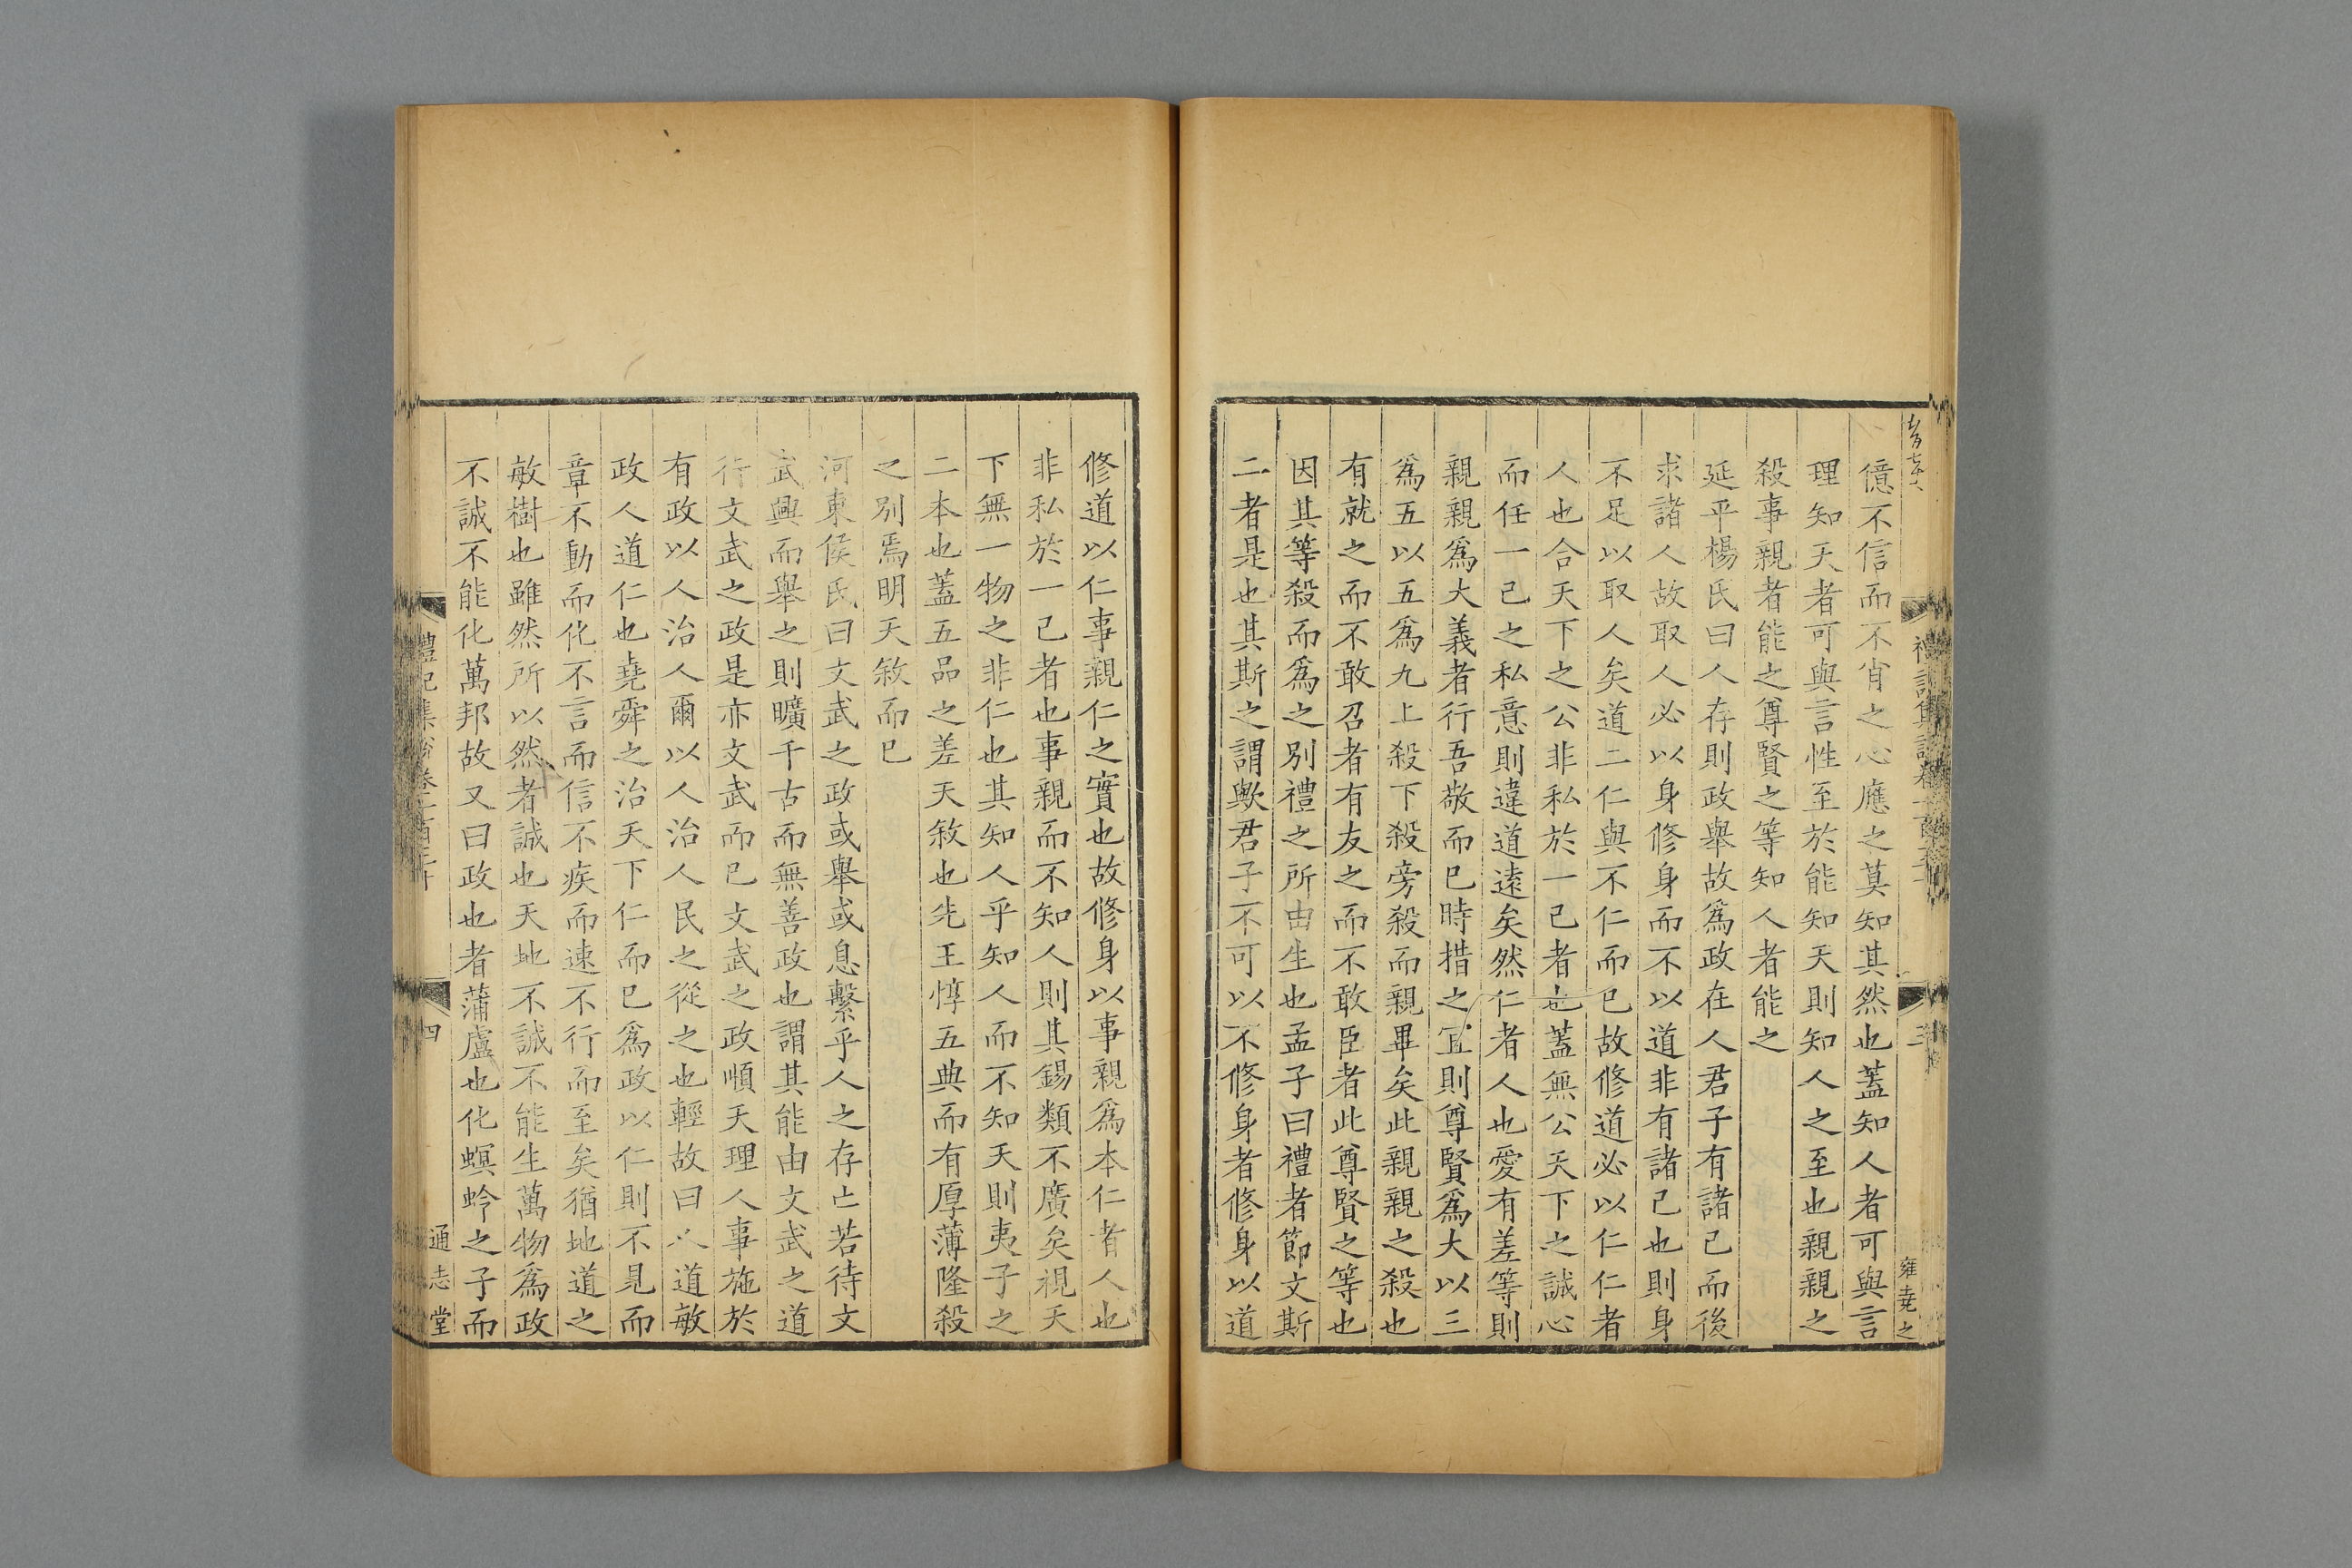 億不信而不肯之心應之莫知其然也蓋知人者可與言
理知天者可與言性至於能知天則知人之至也親親之
殺事親者能之尊賢之等知人者能之
延平楊氏曰人存則政舉故為政在人君子有諸己而後
求諸人故取人必以身修身而不以道非有諸己也則身
不足以取人矣道二仁與不仁而已故修道必以仁仁者
人也合天下之公非私於一己者也蓋無公天下之誠心
而任一己之私意則違道遠矣然仁者人也愛有差等則
親親為大義者行吾敬而已時措之宜則尊賢為大以三
為五以五為九上殺下殺旁殺而親畢矣此親親之殺也
有就之而不敢召者有友之而不敢臣者此尊賢之等也
因其等殺而為之別禮之所由生也孟子曰禮者節文斯
二者是也其斯之謂歟君子不可以不修身者修身以道
修道以仁事親仁之實也故修身以事親為本仁者人也
非私於一己者也事親而不知人則其錫類不廣矣視天
下無一物之非仁也其知人乎知人而不知天則夷子之
二本也蓋五品之差天敘也先王惇五典而有厚薄隆殺
之別焉明天敘而已
河東侯氏曰文武之政或舉或息繫乎人之存亡若待文
武興而舉之則曠千古而無善政也謂其能由文武之道
行文武之政是亦文武而已文武之政順天理人事施於
有政以人治人爾以人治人民之從之也輕故曰人道敏
政人道仁也堯舜之治天下仁而已為政以仁則不見而
章不動而化不言而信不疾而速不行而至矣猶地道之
敏樹也雖然所以然者誠也天地不誠不能生萬物為政
不誠不能化萬邦故又曰政也者蒲盧也化螟蛉之子而
禮記集說卷
四
通志堂